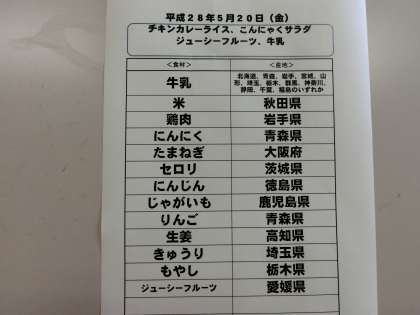 平成28年5月20日（金）
チキンカレーライス、こんにゃくサラダ
ジューシーフルーツ、牛乳
＜食材＞ ＜産地＞
牛乳 北海道、青森、岩手、宮城、山形、埼玉、栃木、群馬、神奈川、静岡、千葉、福島のいずれか
米 秋田県
鶏肉 岩手県
にんにく 青森県
たまねぎ 大阪府
セロリ 茨城県
にんじん 徳島県
じゃがいも 鹿児島県
りんご 青森県
生姜 高知県
きゅうり 埼玉県
もやし 栃木県
ジューシーフルーツ 愛媛県